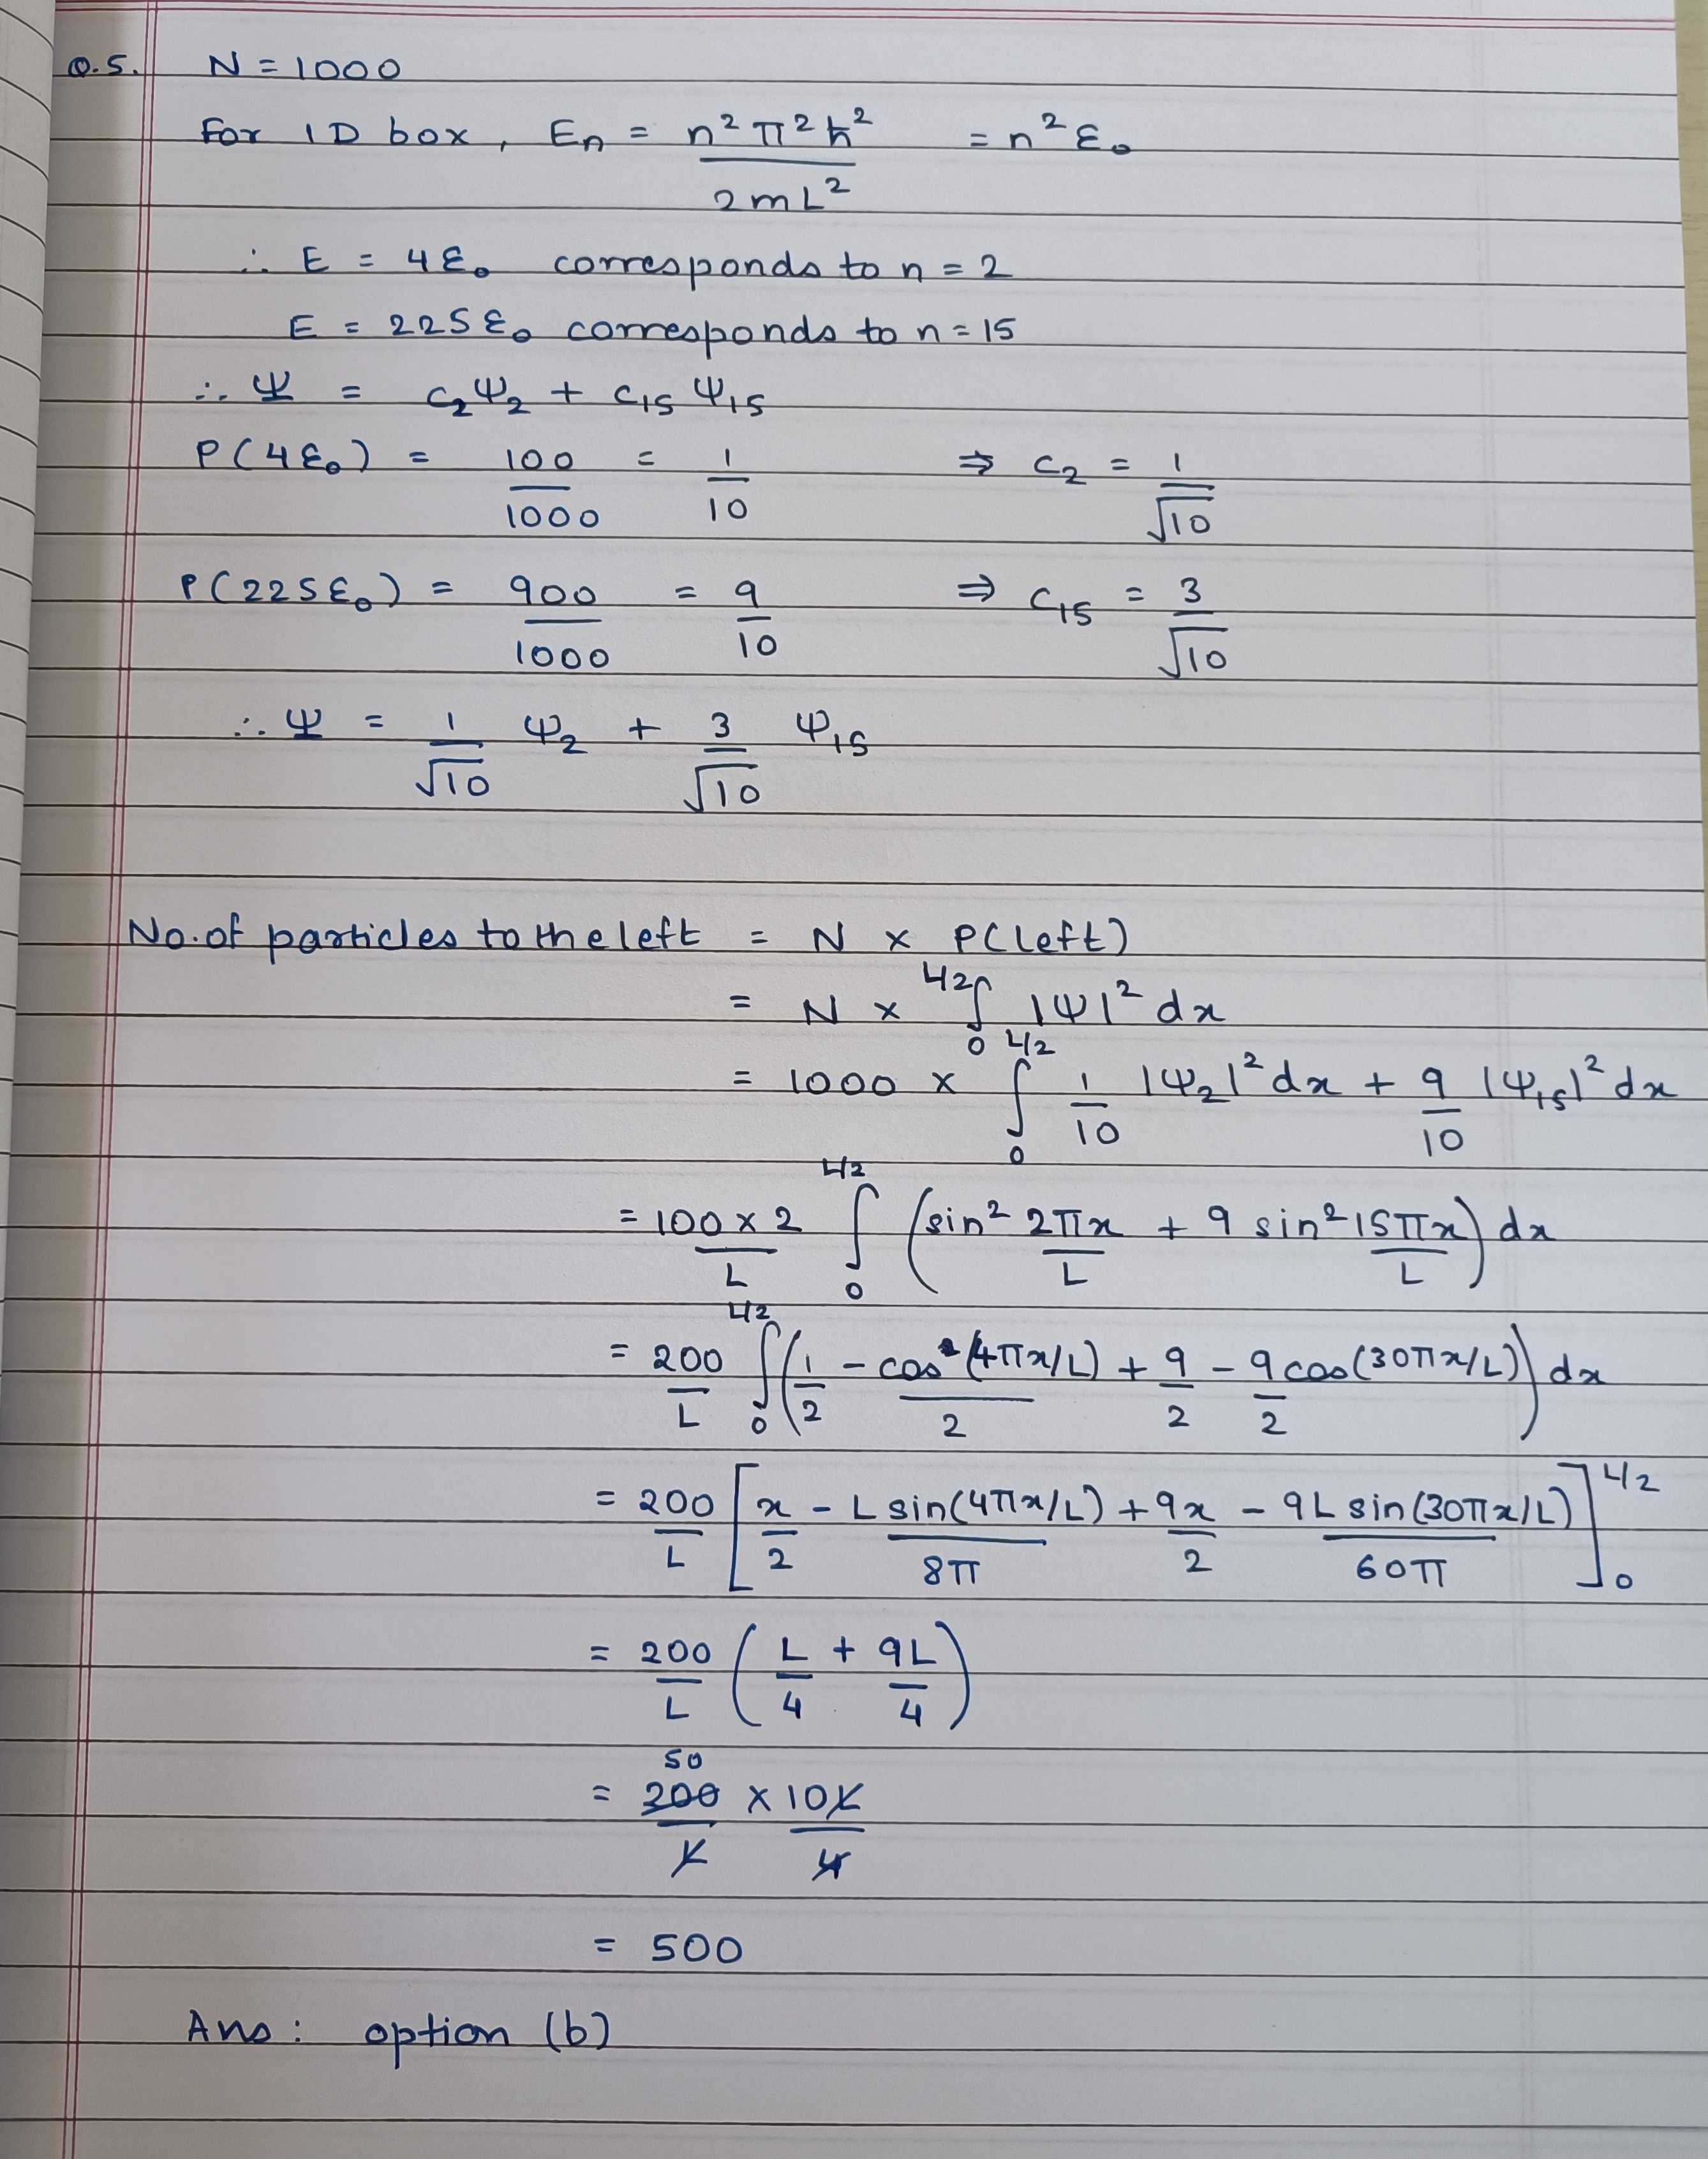 Q.5. N = 1000
For 1D box, En = n² π² ħ² / 2mL² = n² ε₀
∴ E = 4ε₀ corresponds to n = 2
E = 225ε₀ corresponds to n = 15
∴ Ψ = c₂Ψ₂ + c₁₅Ψ₁₅
P(4ε₀) = 100/1000 = 1/10 ⇒ c₂ = 1/√10
P(225ε₀) = 900/1000 = 9/10 ⇒ c₁₅ = 3/√10
∴ Ψ = 1/√10 Ψ₂ + 3/√10 Ψ₁₅
No. of particles to the left = N × P(left)
= N × ∫₀^{L/2} |Ψ|² dx
= 1000 × ∫₀^{L/2} 1/10 |Ψ₂|² dx + 9/10 |Ψ₁₅|² dx
= 100 × 2 / L ∫₀^{L/2} (sin² 2πx/L + 9 sin² 15πx/L) dx
= 200/L ∫₀^{L/2} (1/2 - cos(4πx/L)/2 + 9/2 - 9/2 cos(30πx/L)) dx
= 200/L [x/2 - L sin(4πx/L)/8π + 9x/2 - 9L sin(30πx/L)/60π]₀^{L/2}
= 200/L (L/4 + 9L/4)
50
= 200/L × 10L/4
= 500
Ans: option (b)